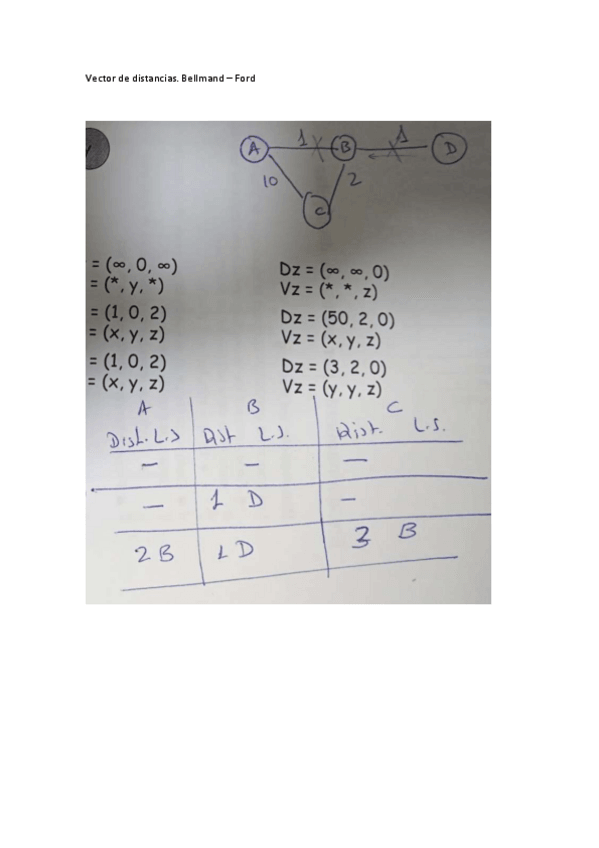 Vector de distancias. Bellmand – Ford
A 1 B 1 D
10 2
C
= (∞, 0, ∞) Dz = (∞, ∞, 0)
= (*, y, *) Vz = (*, *, z)
= (1, 0, 2) Dz = (50, 2, 0)
= (x, y, z) Vz = (x, y, z)
= (1, 0, 2) Dz = (3, 2, 0)
= (x, y, z) Vz = (y, y, z)
A B C
Dist. L.S Dist L.S. Dist. L.S.
— — —
— 1 D —
2 B 1 D 3 B